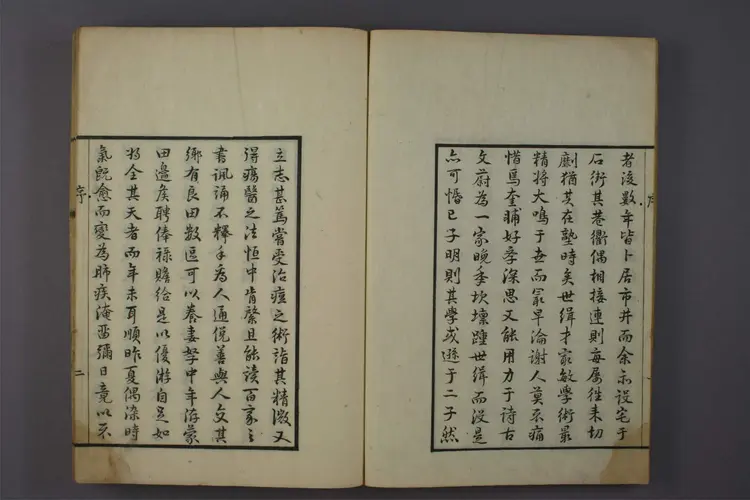 者後數年皆卜居市井而余亦設宅于
石術其巷衢偶相接連則每屢往来切
劘猶其在塾時矣世緝才㝡敏學術最
精将大鳴于世而㝡早淪謝人莫不痛
惜焉奎輔好学深思又能用力于诗古
文蔚為一家晚年坎壈踵世緝而没是
亦可惜已子明則其學或遜于二子然
立志甚篤嘗受治痘之術詣其精微又
得瘍醫之法恒中肯綮且能读百家之
書諷誦不釋手為人通侻善與人交其
鄉有良田數區可以養妻孥中年游蒙
田邊矦聘俸禄贍給是以優游自足如
将全其天者而年未耳順昨夏偶染時
氣既愈而變為肺疾淹留彌日竟以不
序
二